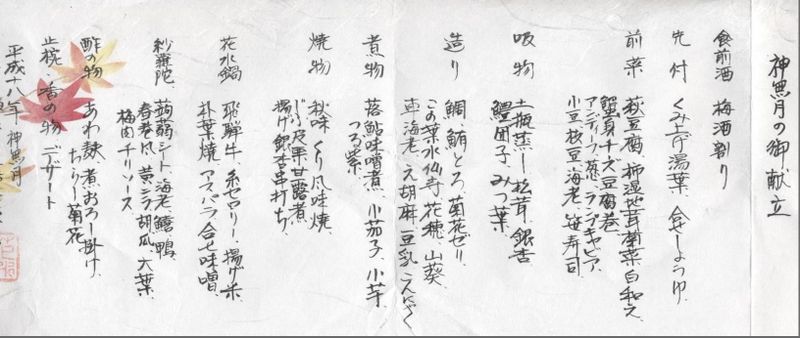 神無月の御献立
食前酒 梅酒割り
先付 くみ上げ湯葉 合せしょうゆ
前菜 萩豆腐 柿湿地茸菊菜白和え
蟹身チーズ豆腐巻
アンディーブ 蒸し キャビア
小豆枝豆海老 笹寿司
吸物 土瓶蒸し 松茸 銀杏
鱧団子 みつ葉
造り 鯛 鮪とろ 菊花ゼリー
この葉水仙寺 花穂 山葵
車海老 胡麻豆乳こんにゃく
煮物 落鮎味噌煮 小茄子 小芋
つる紫
焼物 秋味 くり風味焼
栗甘露煮
揚げ銀杏串打ち
花水鍋 飛騨牛 糸セロリー 揚げ米
朴葉焼 アスパラ 合せ味噌
紗羅陀 蒟蒻シート 海老 鱧 鴨
春巻風 黄ニラ 胡瓜 大葉
梅肉チリソース
酢の物 あわ麸煮おろし掛け
ちらし菊花
止椀・香の物 デザート
平成十八年 神無月